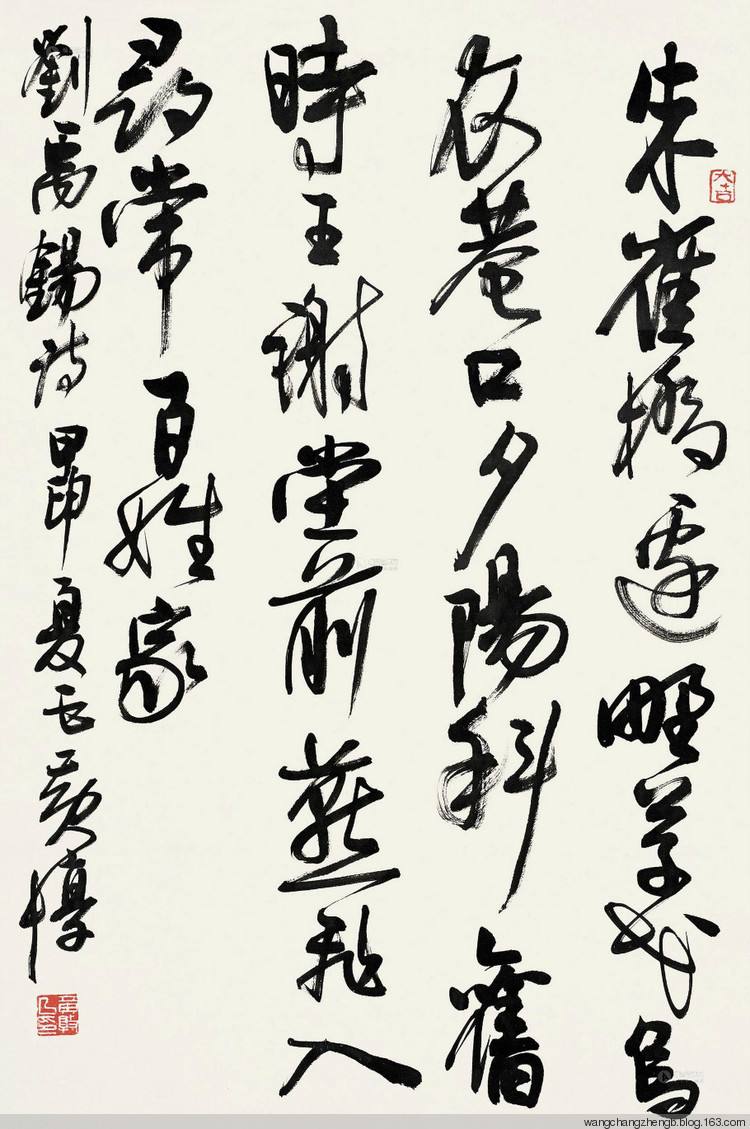 朱雀橋邊野草花烏
衣巷口夕陽斜舊
時王謝堂前燕飛入
尋常百姓家
劉禹錫詩甲申夏黃惇
大吉
wangchangzhengb.blog.163.com